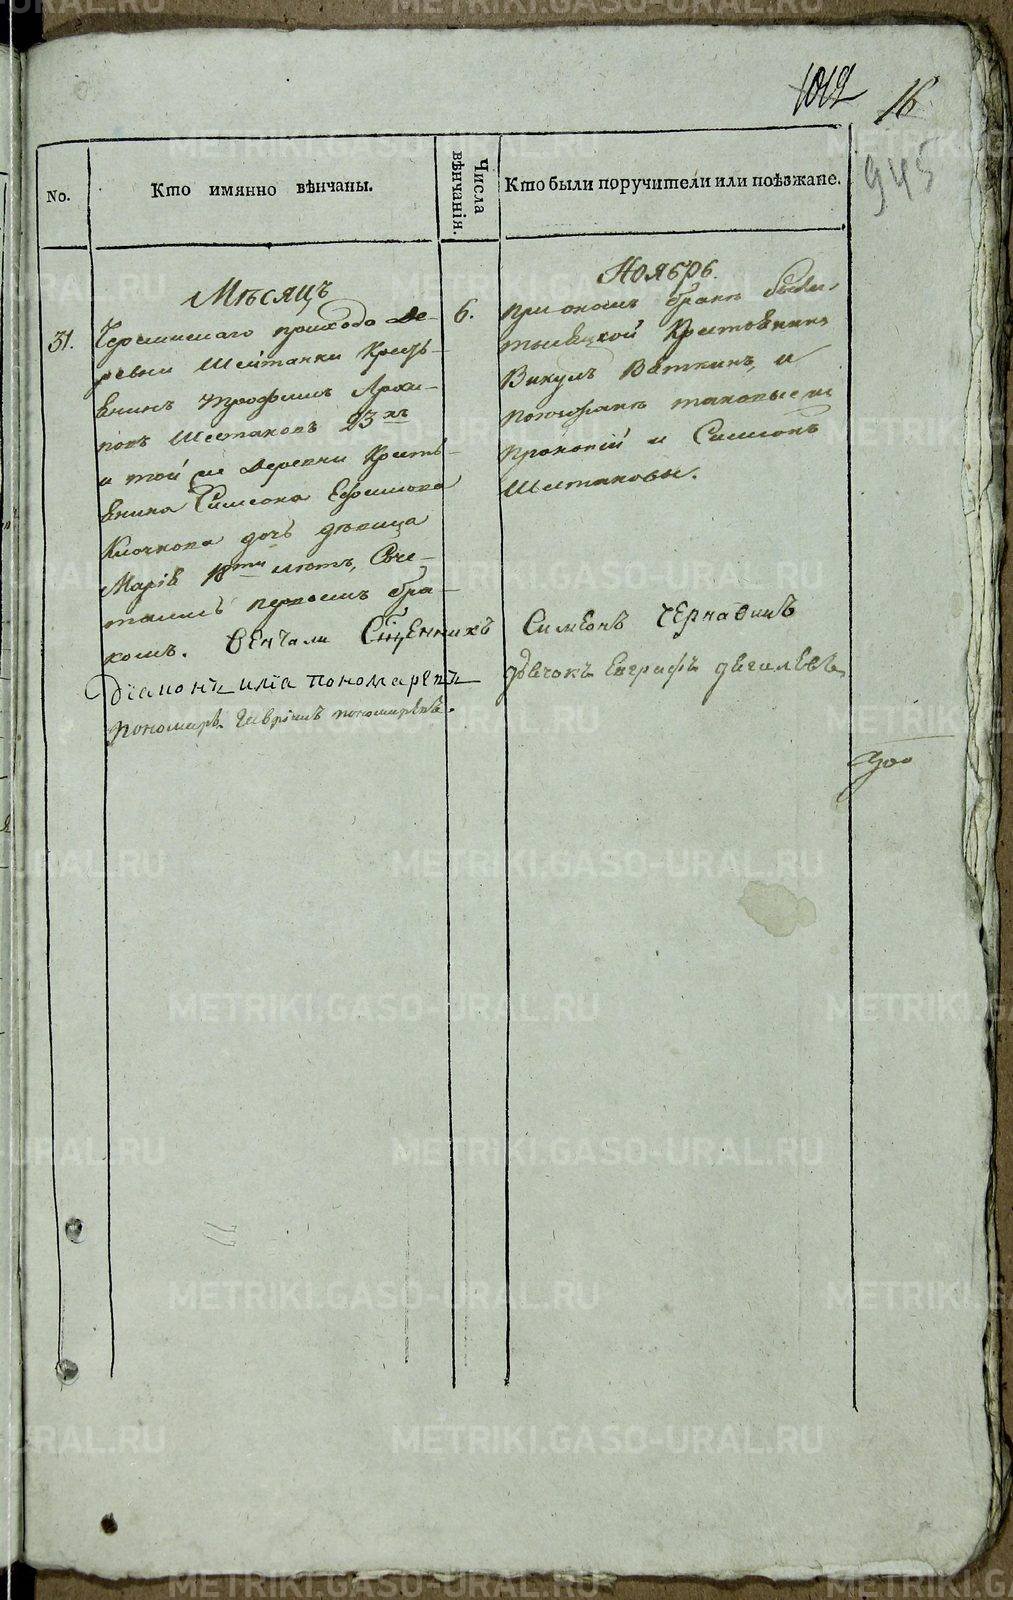 1012 16
945
No.
Кто имянно вѣнчаны.
Числа вѣнчанія.
Кто были поручители или поѣзжане.
Мѣсяцъ
Ноябрь.
31.
прихода де-
ревни Шестаки Кресть-
янинъ Трофимъ Архи-
повъ Шестаковъ 23хъ
и той же деревни Кресть-
янина Симеона Ефимова
Клочкова дочь дѣвица
Марія 18ти лѣтъ, Соче-
тались первымъ бра-
комъ. Венчали Сщенникъ
Діаконъ илія пономаревъ
Пономарь Гаврiилъ пономаревъ.
6.
При ономъ бракѣ были
Крестьянинъ
Викулъ Вяткинъ, и
таковые же
Прокопій и Симеонъ
Шестаковы.
Симеонъ Чернавинъ
дьячокъ Евграфъ
900
METRIKI.GASO-URAL.RU